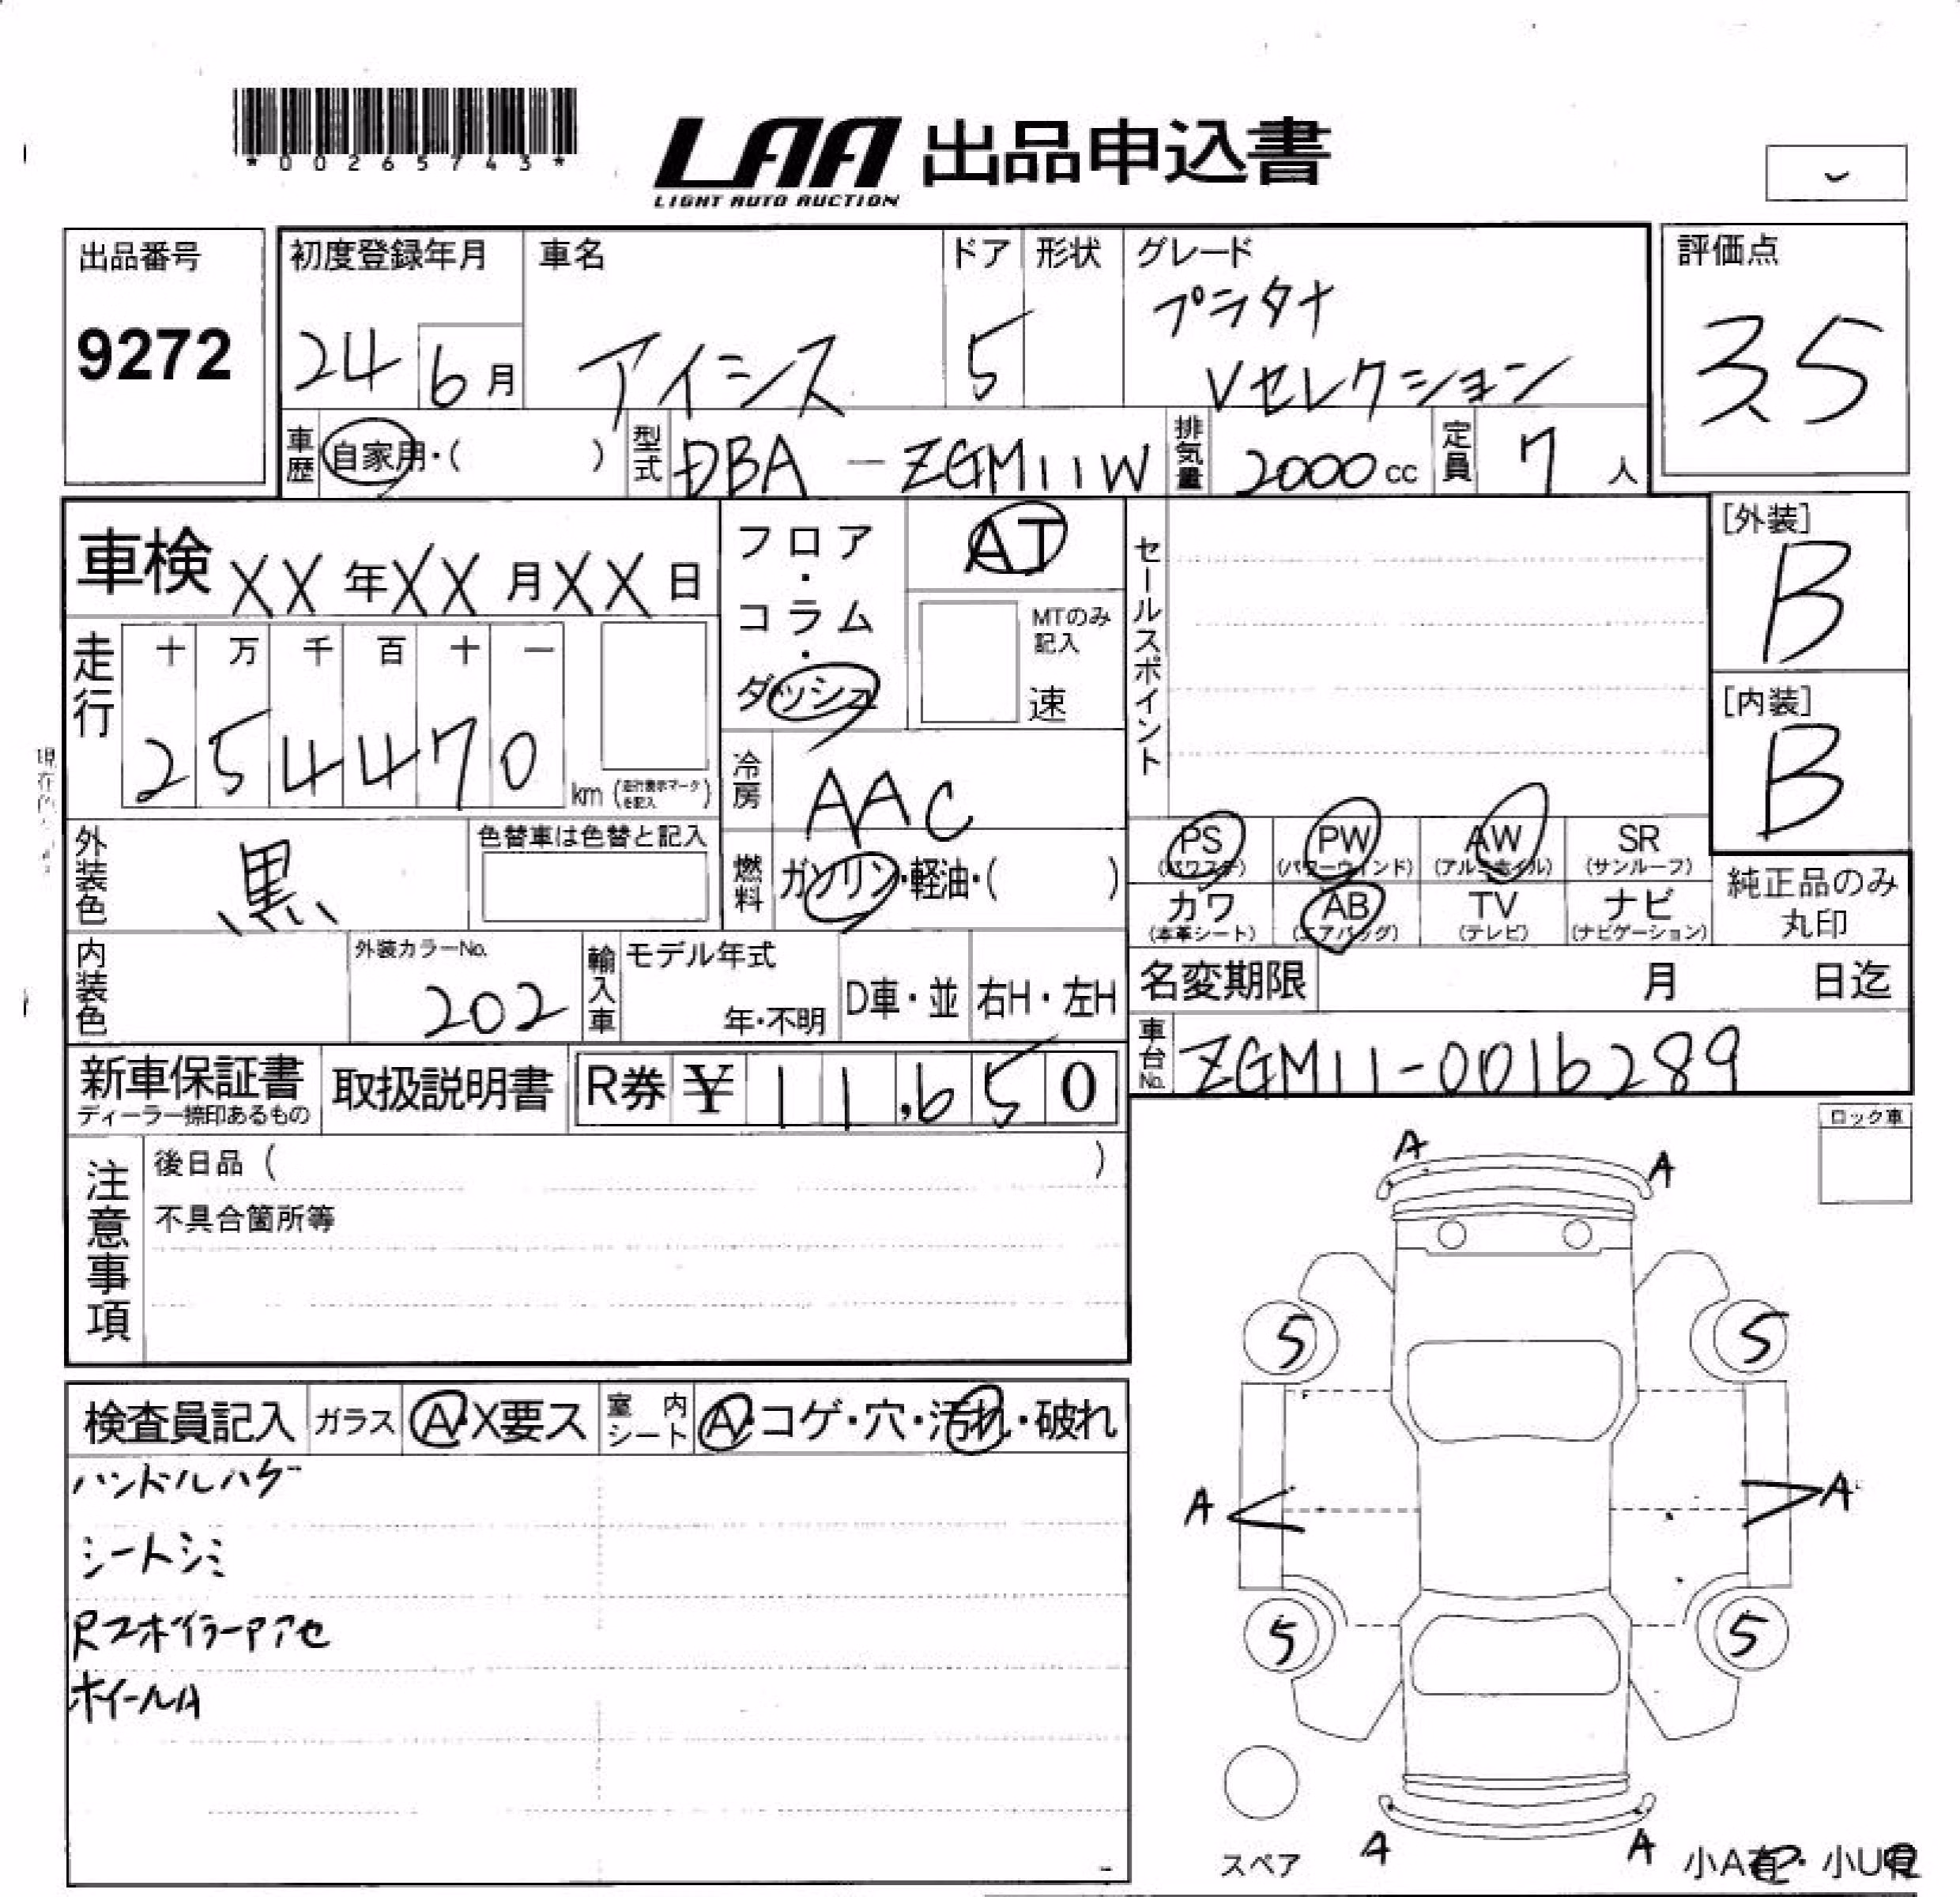 *00265743*
LAA 出品申込書
LIGHT AUTO AUCTION
出品番号
9272
初度登録年月
24 6月
車名
アイシス
ドア
5
形状
グレード
プラタナ
Vセレクション
評価点
3.5
車歴 自家用・( )
型式 DBA-ZGM11W
排気量 2000cc
定員 7人
車検 XX年XX月XX日
走行
十 万 千 百 十 一
2 5 4 4 7 0 km(走行表示マークを記入)
フロア・コラム・ダッシュ
AT
MTのみ記入
速
冷房 AAC
燃料 ガソリン・軽油・( )
セールスポイント
[外装]
B
[内装]
B
外装色 黒
色替車は色替と記入
PS (パワステ)
PW (パワーウィンド)
AW (アルミホイル)
SR (サンルーフ)
カワ (本革シート)
AB (エアバッグ)
TV (テレビ)
ナビ (ナビゲーション)
純正品のみ
丸印
内装色
外装カラーNo.
202
輸入車
モデル年式
年・不明
D車・並
右H・左H
名変期限 月 日迄
車台No. ZGM11-0016289
新車保証書
ディーラー捺印あるもの
取扱説明書
R券 ¥ 11,650
注意事項
後日品( )
不具合箇所等
ロック車
検査員記入
ガラス A・X要ス
室内シート A・コゲ・穴・汚れ・破れ
ハンドルハゲ
シートシミ
RスポイラーAアセ
ホイールA
A
A
5
5
A
A
5
5
スペア
A
A
小A有・小U有